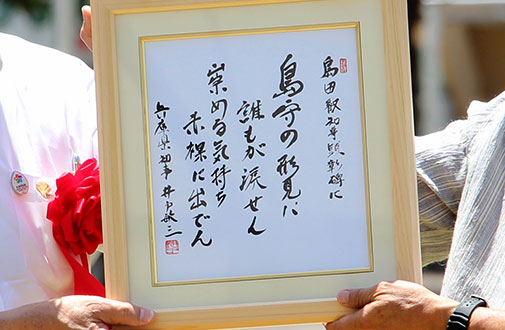 島田叡知事顕彰碑に
島守の形見に
誰もが涙せん
崇める気持ち
赤裸に出でん
兵庫県知事 井戸敏三